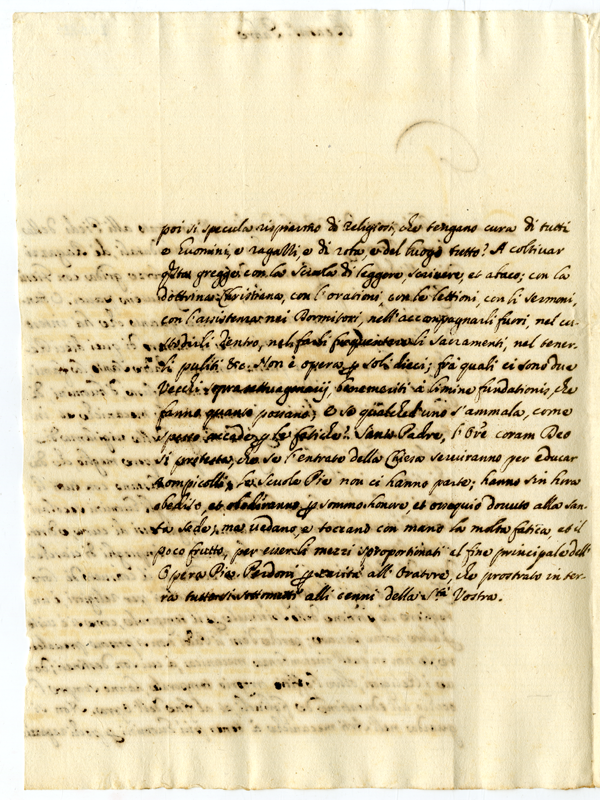 poi si specula risparmio di Religiosi, che tengano cura di tutti
e huomini, e ragazzi, e di robba, e del luogo tutto? A coltivar
questa gregge con la Scuola di leggere, scrivere, et abaco; con la
dottrina Christiana, con l'orationi, con le lettioni, con li sermoni,
con l'assistenza nei Dormitori, nell'accompagnarli fuori, nel cu-
stodirli dentro, nel farli frequentare li Sacramenti, nel tener-
li puliti &c. Non è opera p soli dieci; frà quali ci sono due
Vecchi settuagenarij, benemeriti à limine fundationis, che
fanno quanto possono; E se qualched'uno s'ammala, come
spesso accade p le fatiche? Santo Padre, l'Ore coram Deo
si protesta, che se l'entrate della Chiesa serviranno per educar
rompicolli, le Scuole Pie non ci hanno parte; hanno sin hora
obedito, et obediranno p sommo honore, et ossequio dovuto alla San-
ta Sede; ma vedano, e toccano con mano la molta fatica, et il
poco frutto, per essere li mezzi sproportionati al fine principale dell'
Opera Pia. Perdoni p carità all'Oratore, che prostrato in ter-
ra tutto si sottomette alli cenni della Stà Vostra.